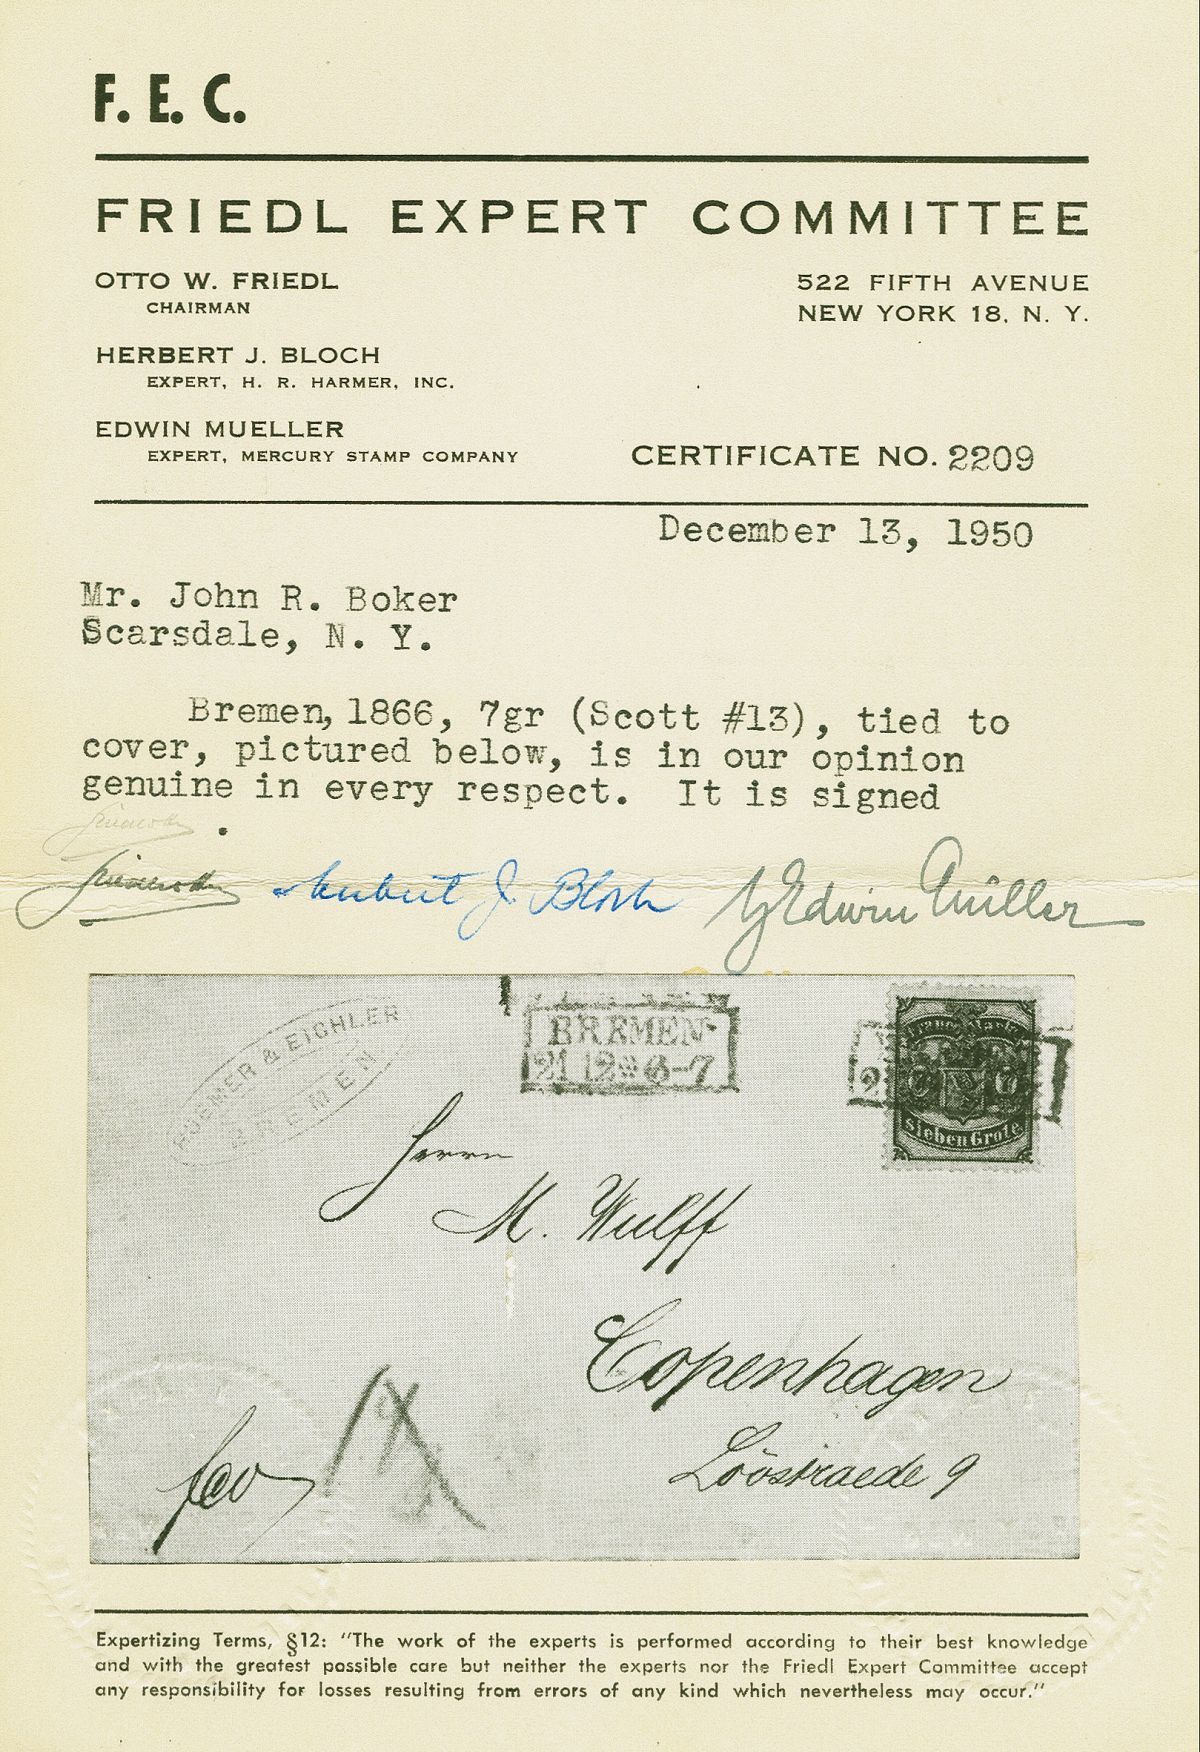 F. E. C.
FRIEDL EXPERT COMMITTEE
OTTO W. FRIEDL
CHAIRMAN
522 FIFTH AVENUE
NEW YORK 18, N. Y.
HERBERT J. BLOCH
EXPERT, H. R. HARMER, INC.
EDWIN MUELLER
EXPERT, MERCURY STAMP COMPANY
CERTIFICATE NO. 2209
December 13, 1950
Mr. John R. Boker
Scarsdale, N. Y.
Bremen, 1866, 7gr (Scott #13), tied to
cover, pictured below, is in our opinion
genuine in every respect. It is signed
.
Herbert J. Bloch
Edwin Müller
& EICHLER
BREMEN
BREMEN
21 12 6-7
Franco Marke
7 7
Sieben Grote
2
Herrn
M. Wulff
Copenhagen
Lööstraede 9
Expertizing Terms, §12: "The work of the experts is performed according to their best knowledge
and with the greatest possible care but neither the experts nor the Friedl Expert Committee accept
any responsibility for losses resulting from errors of any kind which nevertheless may occur."